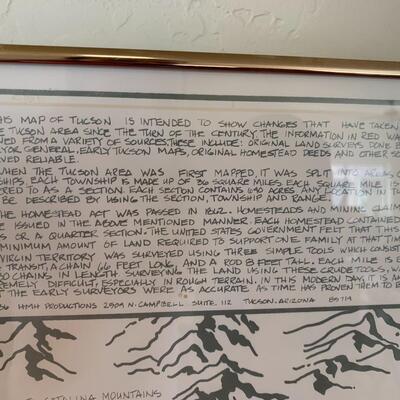 HIS MAP OF TUCSON IS INTENDED TO SHOW CHANGES THAT HAVE TAKEN
E TUCSON AREA SINCE THE TURN OF THE CENTURY. THE INFORMATION IN RED WA
NED FROM A VARIETY OF SOURCES. THESE INCLUDE: ORIGINAL LAND SURVEYS DONE B
YOR GENERAL, EARLY TUCSON MAPS, ORIGINAL HOMESTEAD DEEDS AND OTHER SO
VED RELIABLE.
WHEN THE TUCSON AREA WAS FIRST MAPPED, IT WAS SPLIT INTO AREAS C
SHIPS. EACH TOWNSHIP IS MADE UP OF 36 SQUARE MILES. EACH SQUARE MILE IS
RED TO AS A SECTION. EACH SECTION CONTAINS 640 ACRES. ANY LOCATION IN T
BE DESCRIBED BY USING THE SECTION, TOWNSHIP AND RANGE.
THE HOMESTEAD ACT WAS PASSED IN 1862. HOMESTEADS AND MINING CLAIM
E ISSUED IN THE ABOVE MENTIONED MANNER. EACH HOMESTEAD CONTAINED
S, OR A QUARTER SECTION. THE UNITED STATES GOVERNMENT FELT THAT THIS
MINIMUM AMOUNT OF LAND REQUIRED TO SUPPORT ONE FAMILY AT THAT TIM
VIRGIN TERRITORY WAS SURVEYED USING THREE SIMPLE TOOLS WHICH CONSIST
TRANSIT, A CHAIN 66 FEET LONG, AND A ROD 8 FEET TALL. EACH MILE IS E
80 CHAINS IN LENGTH. SURVEYING THE LAND USING THESE CRUDE TOOLS, W
REMELY DIFFICULT, ESPECIALLY IN ROUGH TERRAIN. IN THIS MODERN DAY, IT IS AM
T THE EARLY SURVEYORS WERE AS ACCURATE AS TIME HAS PROVEN THEM TO B
86 HMH PRODUCTIONS 2509 N. CAMPBELL SUITE 112 TUCSON, ARIZONA 85719
CATALINA MOUNTAINS